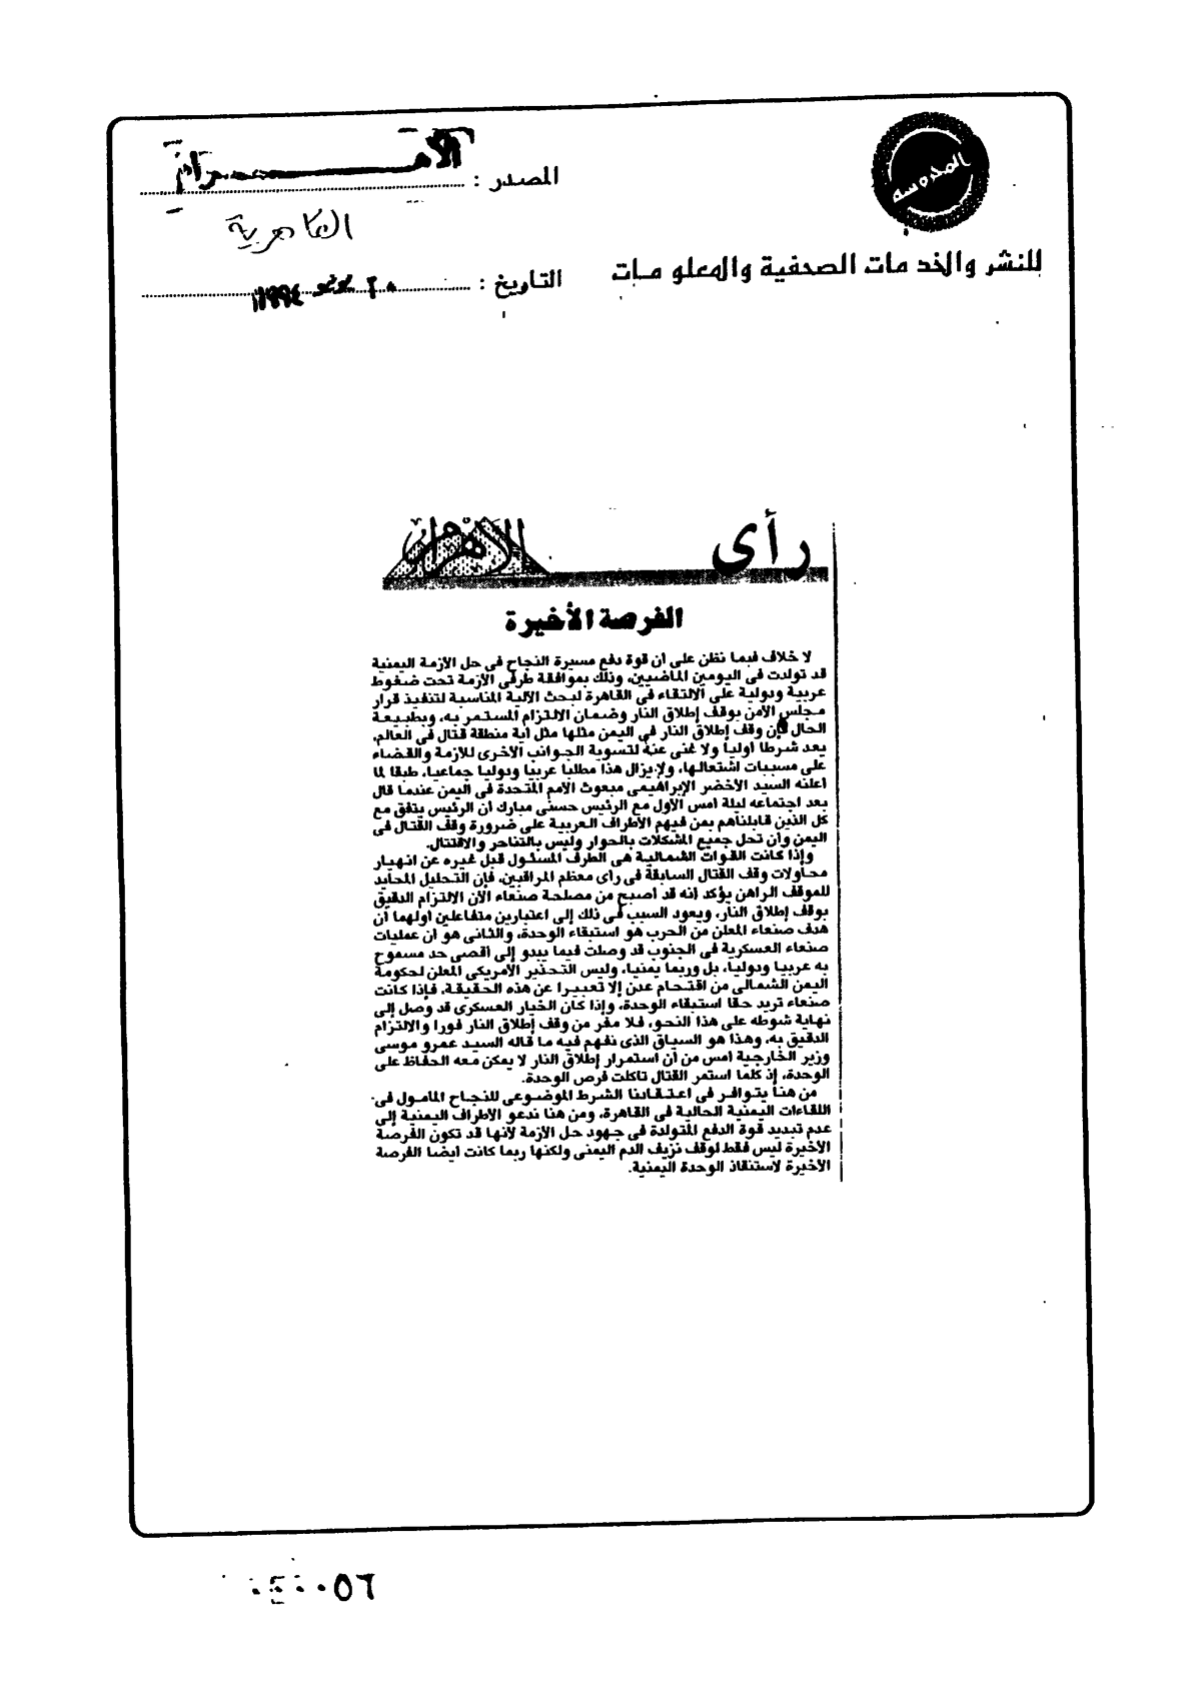 المحروسة
المصدر : الأهـــرام
القاهرية
للنشر والخدمات الصحفية والمعلومات
التاريخ : ٢٠ يونيو ١٩٩٤
رأى الأهرام
الفرصة الأخيرة
لا خلاف فيما نظن على أن قوة دفع مسيرة النجاح فى حل الأزمة اليمنية
قد تولدت فى اليومين الماضيين، وذلك بموافقة طرفى الأزمة تحت ضغوط
عربية ودولية على الالتقاء فى القاهرة لبحث الآلية المناسبة لتنفيذ قرار
مجلس الأمن بوقف إطلاق النار وضمان الالتزام المستمر به، وبطبيعة
الحال فإن وقف إطلاق النار فى اليمن مثلها مثل أية منطقة قتال فى العالم،
يعد شرطا أوليا ولا غنى عنه لتسوية الجوانب الأخرى للأزمة والقضاء
على مسببات اشتعالها، ولايزال هذا مطلبا عربيا ودوليا جماعيا، طبقا لما
أعلنه السيد الأخضر الإبراهيمى مبعوث الأمم المتحدة فى اليمن عندما قال
بعد اجتماعه ليلة أمس الأول مع الرئيس حسنى مبارك أن الرئيس يتفق مع
كل الذين قابلناهم بمن فيهم الأطراف العربية على ضرورة وقف القتال فى
اليمن وأن تحل جميع المشكلات بالحوار وليس بالتناحر والاقتتال.
وإذا كانت القوات الشمالية هى الطرف المسئول قبل غيره عن انهيار
محاولات وقف القتال السابقة فى رأى معظم المراقبين، فإن التحليل المحايد
للموقف الراهن يؤكد إنه قد أصبح من مصلحة صنعاء الآن الالتزام الدقيق
بوقف إطلاق النار، ويعود السبب فى ذلك إلى اعتبارين متفاعلين أولهما أن
هدف صنعاء المعلن من الحرب هو استبقاء الوحدة، والثانى هو أن عمليات
صنعاء العسكرية فى الجنوب قد وصلت فيما يبدو إلى أقصى حد مسموح
به عربيا ودوليا، بل وربما يمنيا، وليس التحذير الأمريكى المعلن لحكومة
اليمن الشمالى من اقتحام عدن إلا تعبيرا عن هذه الحقيقة، فإذا كانت
صنعاء تريد حقا استبقاء الوحدة، وإذا كان الخيار العسكرى قد وصل إلى
نهاية شوطه على هذا النحو، فلا مفر من وقف إطلاق النار فورا والالتزام
الدقيق به، وهذا هو السياق الذى نفهم فيه ما قاله السيد عمرو موسى
وزير الخارجية أمس من أن استمرار إطلاق النار لا يمكن معه الحفاظ على
الوحدة، إذ كلما استمر القتال تآكلت فرص الوحدة.
من هنا يتوافر فى اعتقادنا الشرط الموضوعى للنجاح المأمول فى
اللقاءات اليمنية الحالية فى القاهرة، ومن هنا ندعو الأطراف اليمنية إلى
عدم تبديد قوة الدفع المتولدة فى جهود حل الأزمة لأنها قد تكون الفرصة
الأخيرة ليس فقط لوقف نزيف الدم اليمنى ولكنها ربما كانت أيضا الفرصة
الأخيرة لاستنقاذ الوحدة اليمنية.